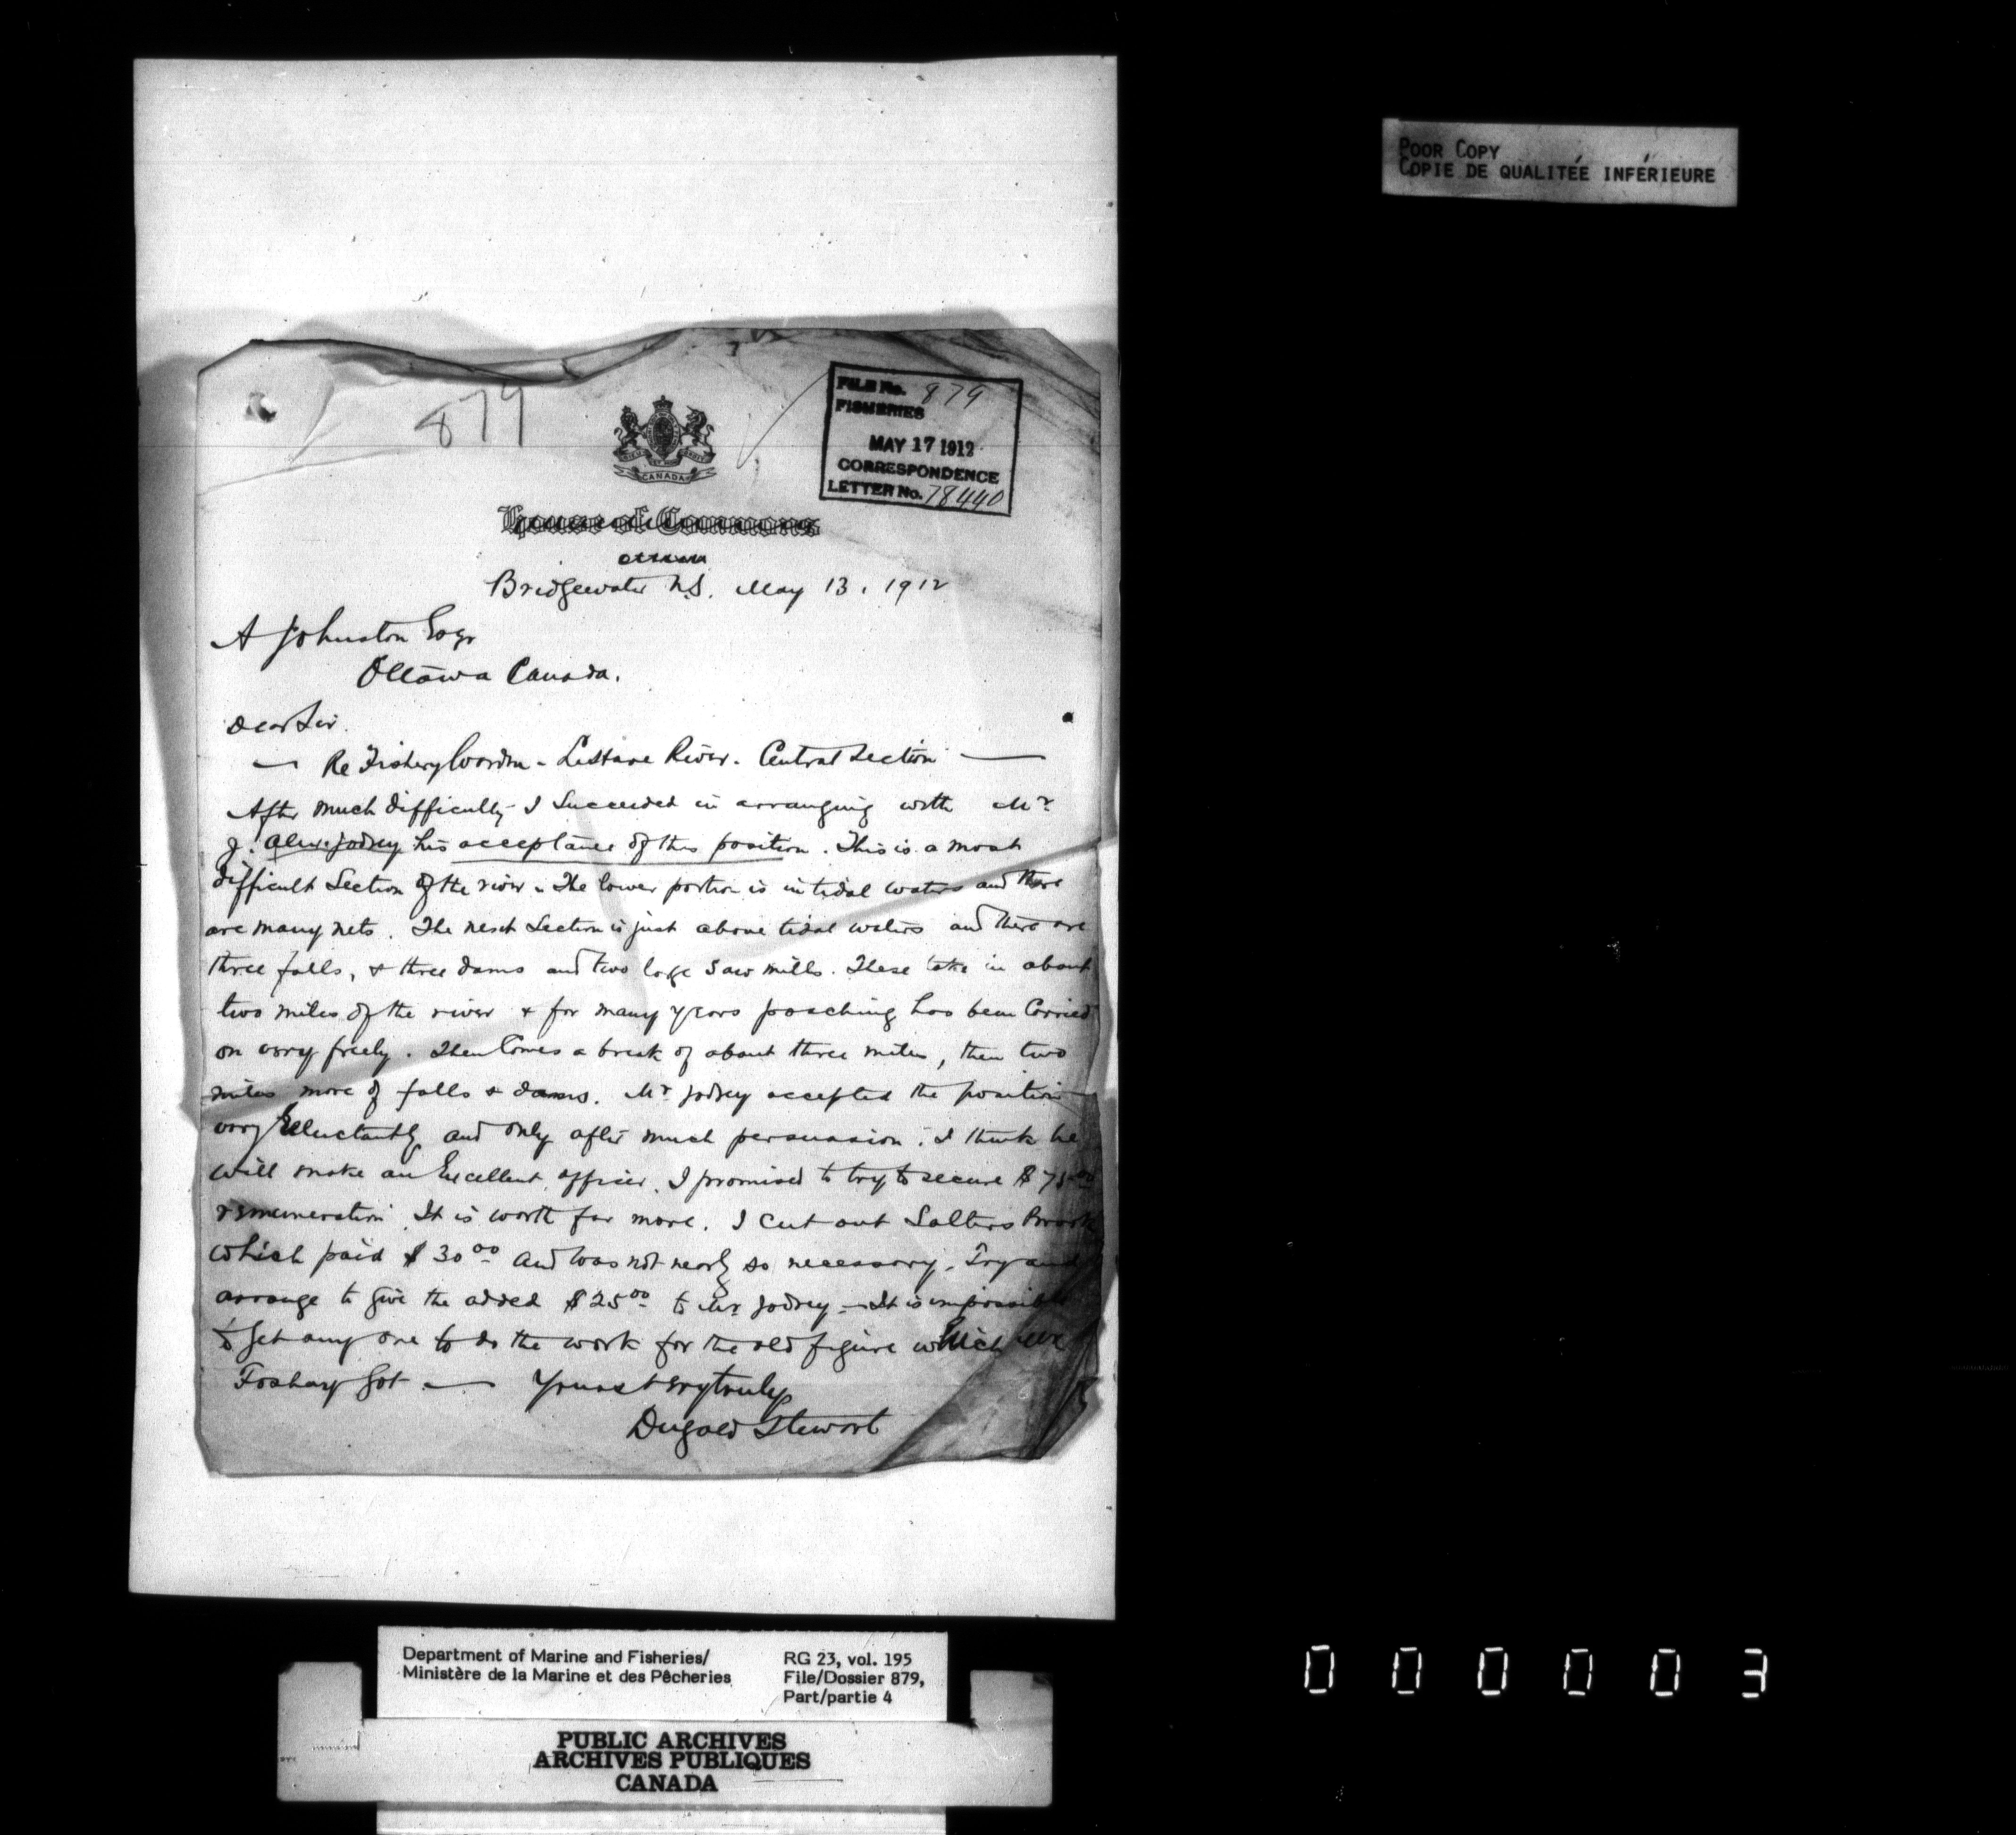 POOR COPY
COPIE DE QUALITÉE INFÉRIEURE
879
FILE No. 879
FISHERIES
MAY 17 1912
CORRESPONDENCE
LETTER No. 78440
CANADA
House of Commons
Ottawa
Bridgewater N.S. May 13, 1912
A Johnston Esqr
Ottawa Canada.
Dear Sir.
— Re Fishery Warden - LaHave River. Central Section —
After much difficulty I succeeded in arranging with Mr
J. Alex. Jodrey his acceptance of this position. This is a most
difficult Section of the river. The lower portion is in tidal waters and there
are many nets. The next Section is just above tidal waters and there are
three falls, & three dams and two large saw mills. These take in about
two miles of the river & for many years poaching has been Carried
on very freely. Then Comes a break of about three miles, then two
miles more of falls & dams. Mr Jodrey accepted the position
very Reluctantly and only after much persuasion. I think he
will make an Excellent officer. I promised to try to secure $75.00
remuneration. It is worth far more. I cut out Salters Brook
which paid $30.00 and was not nearly so necessary. Try and
arrange to give the added $25.00 to Mr Jodrey - It is impossible
to get any one to do the work for the old figure which Mr
Foshay got — Yours very truly
Dugald Stewart
Department of Marine and Fisheries/
Ministère de la Marine et des Pêcheries
RG 23, vol. 195
File/Dossier 879,
Part/partie 4
PUBLIC ARCHIVES
ARCHIVES PUBLIQUES
CANADA
000003